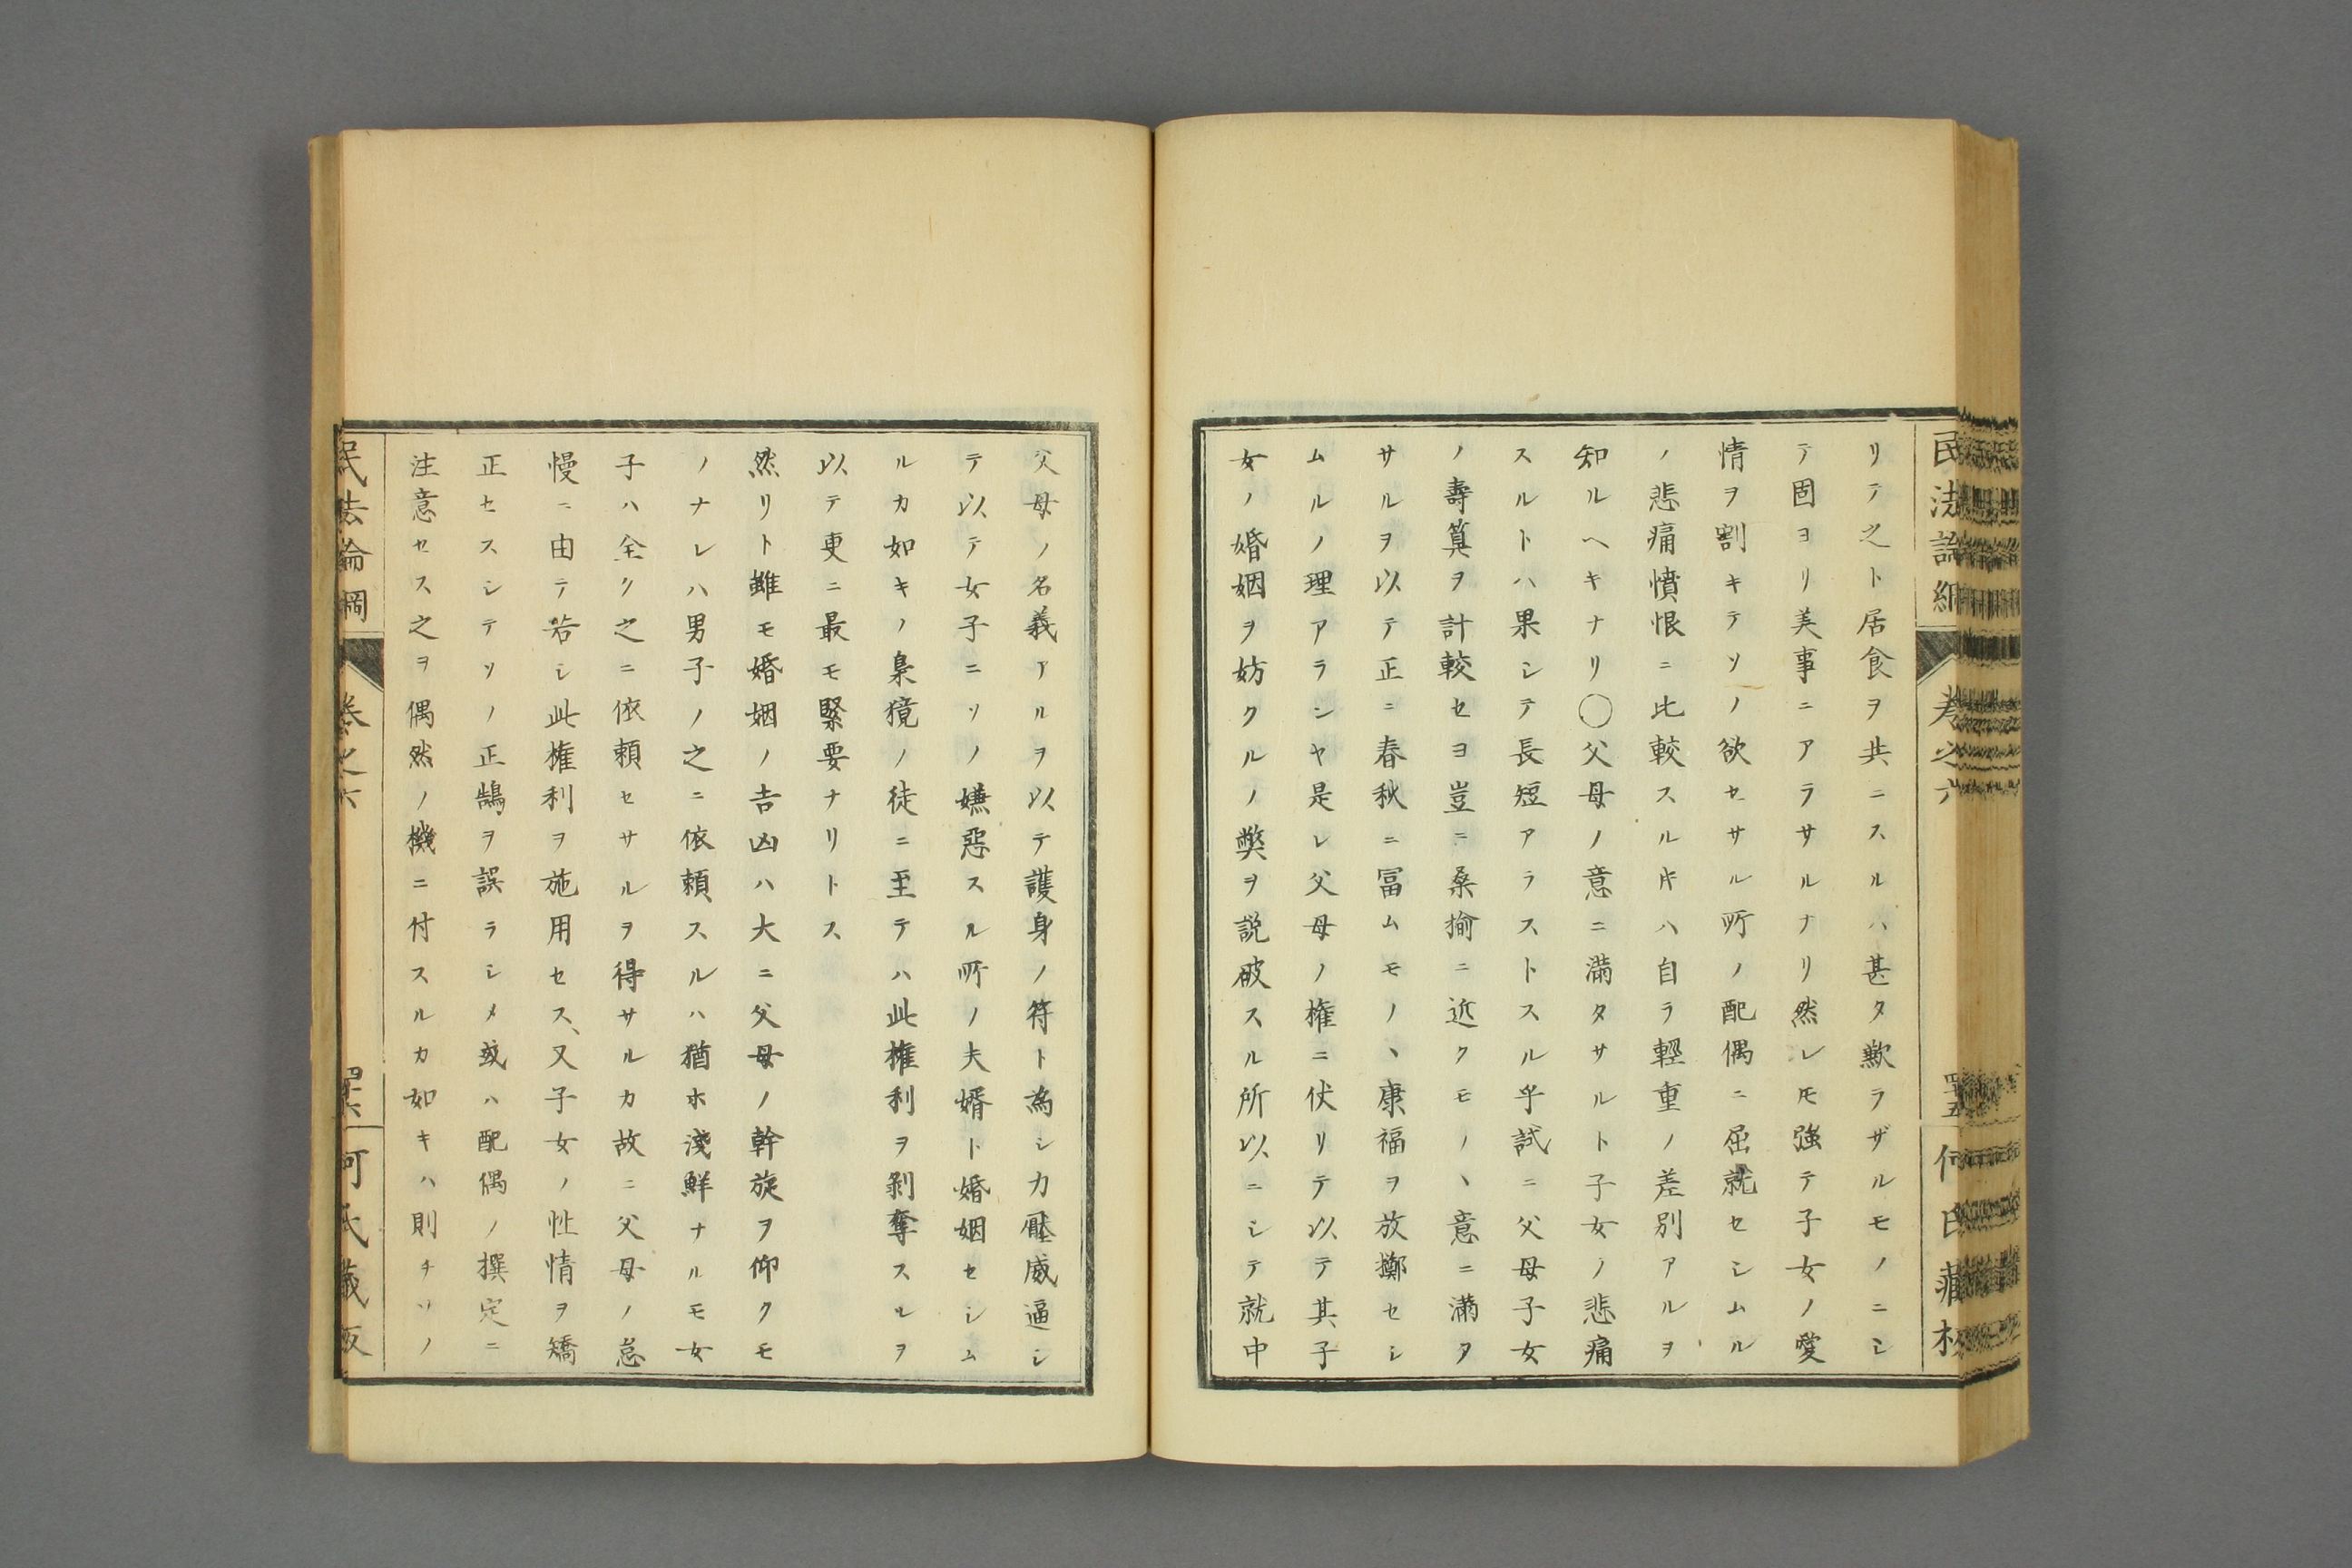 リテ之ト居食ヲ共ニスルハ甚タ歉ラザルモノニシ
テ固ヨリ美事ニアラサルナリ然レ𪜈強テ子女ノ愛
情ヲ割キテソノ欲セサル所ノ配偶ニ屈就セシムル
ノ悲痛憤恨ニ比較スル𪜈ハ自ラ輕重ノ差別アルヲ
知ルヘキナリ〇父母ノ意ニ満タサルト子女ノ悲痛
スルトハ果シテ長短アラストスル乎試ニ父母子女
ノ壽算ヲ計較セヨ豈ニ桑揄ニ近クモノヽ意ニ満タ
サルヲ以テ正ニ春秋ニ冨ムモノヽ康福ヲ放擲セシ
ムルノ理アランヤ是レ父母ノ権ニ伏リテ以テ其子
女ノ婚姻ヲ妨クルノ弊ヲ説破スル所以ニシテ就中
父母ノ名義アルヲ以テ護身ノ符ト為シ力壓威逼シ
テ以テ女子ニソノ嫌惡スル所ノ夫婿ト婚姻セシム
ルカ如キノ梟獍ノ徒ニ至テハ此権利ヲ剥奪スルヲ
以テ更ニ最モ緊要ナリトス
然リト雖モ婚姻ノ吉凶ハ大ニ父母ノ幹旋ヲ仰クモ
ノナレハ男子ノ之ニ依頼スルハ猶ホ淺鮮ナルモ女
子ハ全ク之ニ依頼セサルヲ得サルカ故ニ父母ノ怠
慢ニ由テ若シ此権利ヲ施用セス、又子女ノ性情ヲ矯
正セスシテソノ正鵠ヲ誤ラシメ或ハ配偶ノ撰定ニ
注意セス之ヲ偶然ノ機ニ付スルカ如キハ則チソノ
民法論綱
巻之六
四十六
何氏藏版